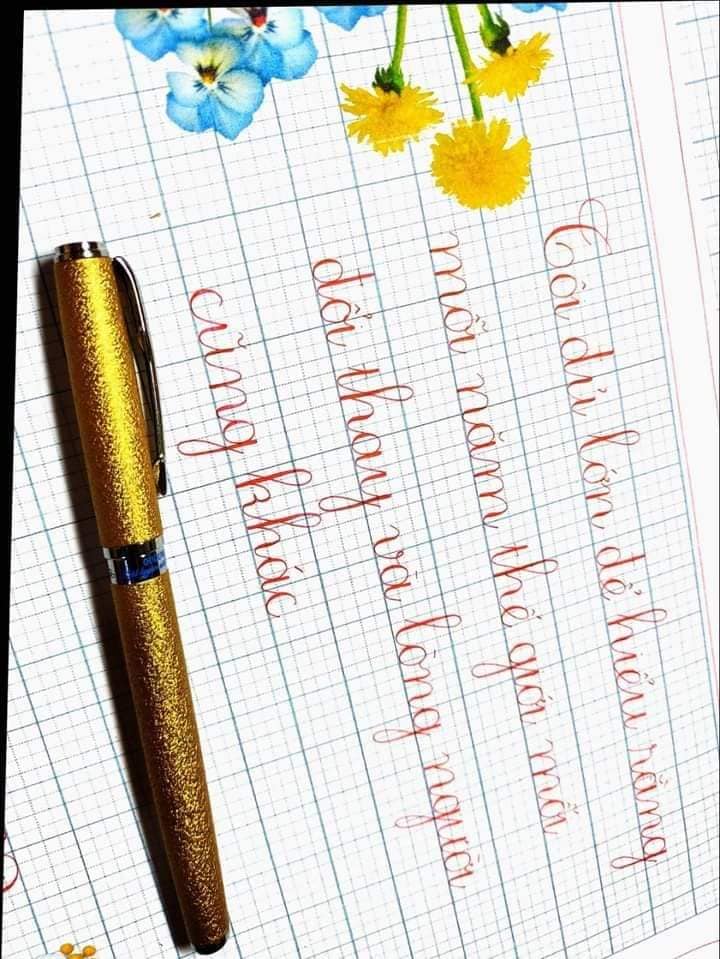 Tôi đủ lớn để hiểu rằng
mỗi năm thế giới mỗi
đổi thay và lòng người
cũng khác